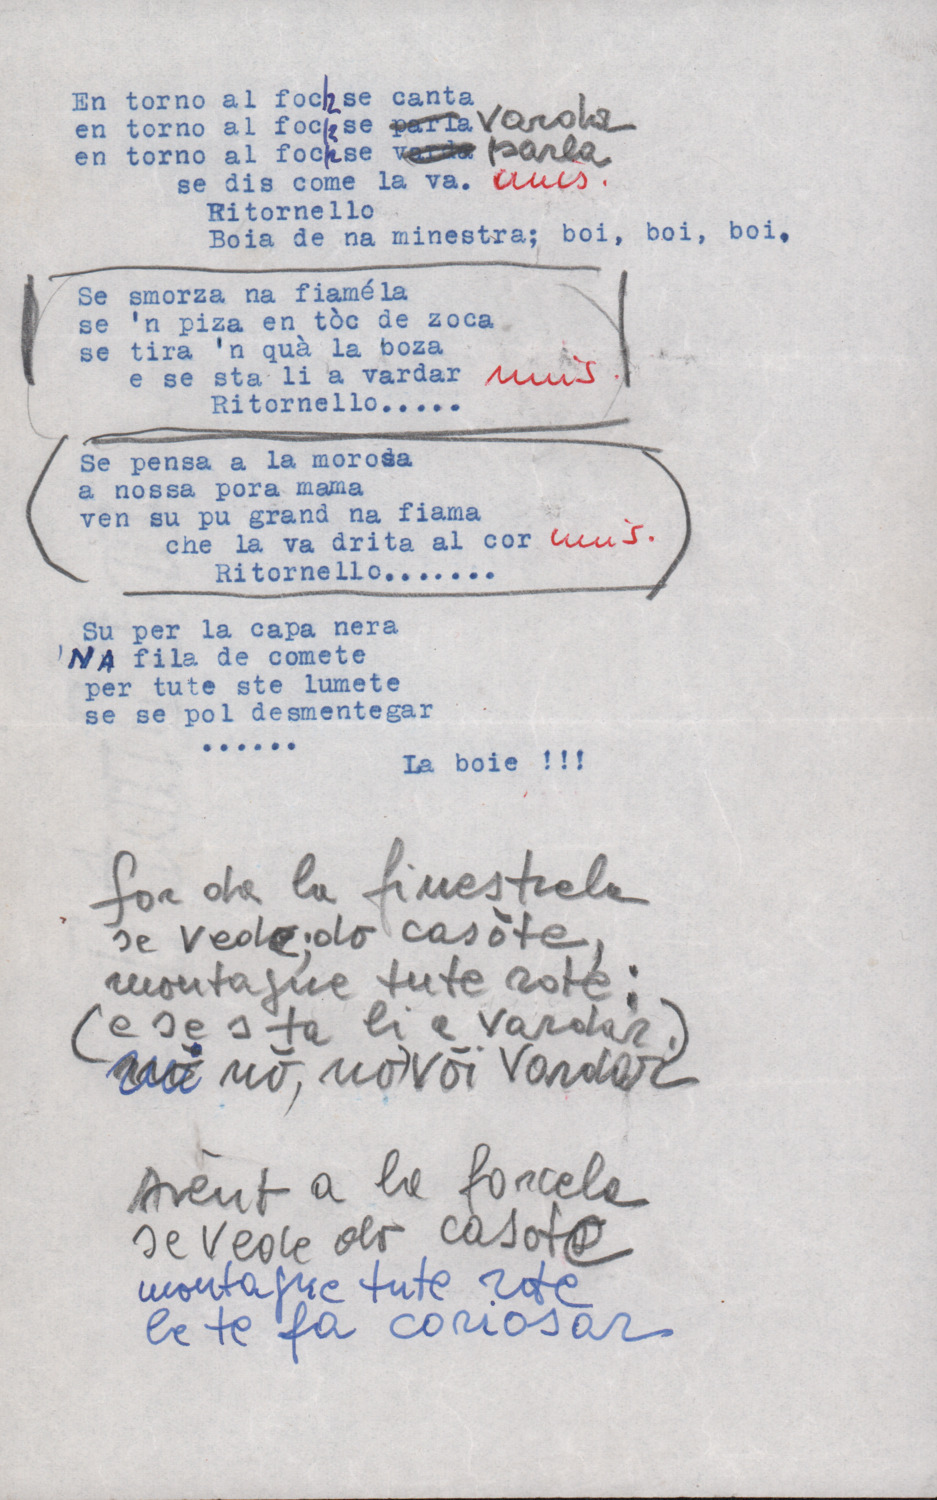 En torno al foch se canta
en torno al foch se parla varda
en torno al foch se varda parla
se dis come la va. mus.
Ritornello
Boia de na minestra; boi, boi, boi.
Se smorza na fiaméla
se 'n piza en tòc de zoca
se tira 'n quà la boza
e se sta li a vardar mus.
Ritornello.....
Se pensa a la morosa
a nossa pora mama
ven su pu grand na fiama
che la va drita al cor mus.
Ritornello.......
Su per la capa nera
'NA fila de comete
per tute ste lumete
se se pol desmentegar
......
La boie !!!
for da la finestrela
se vede do casòte,
montagne tute rote:
(e se sta li a vardar.)
nò, no vòi vardar
Arènt a la forcela
se vede do casote
montagne tute rote
le te fa coriosar